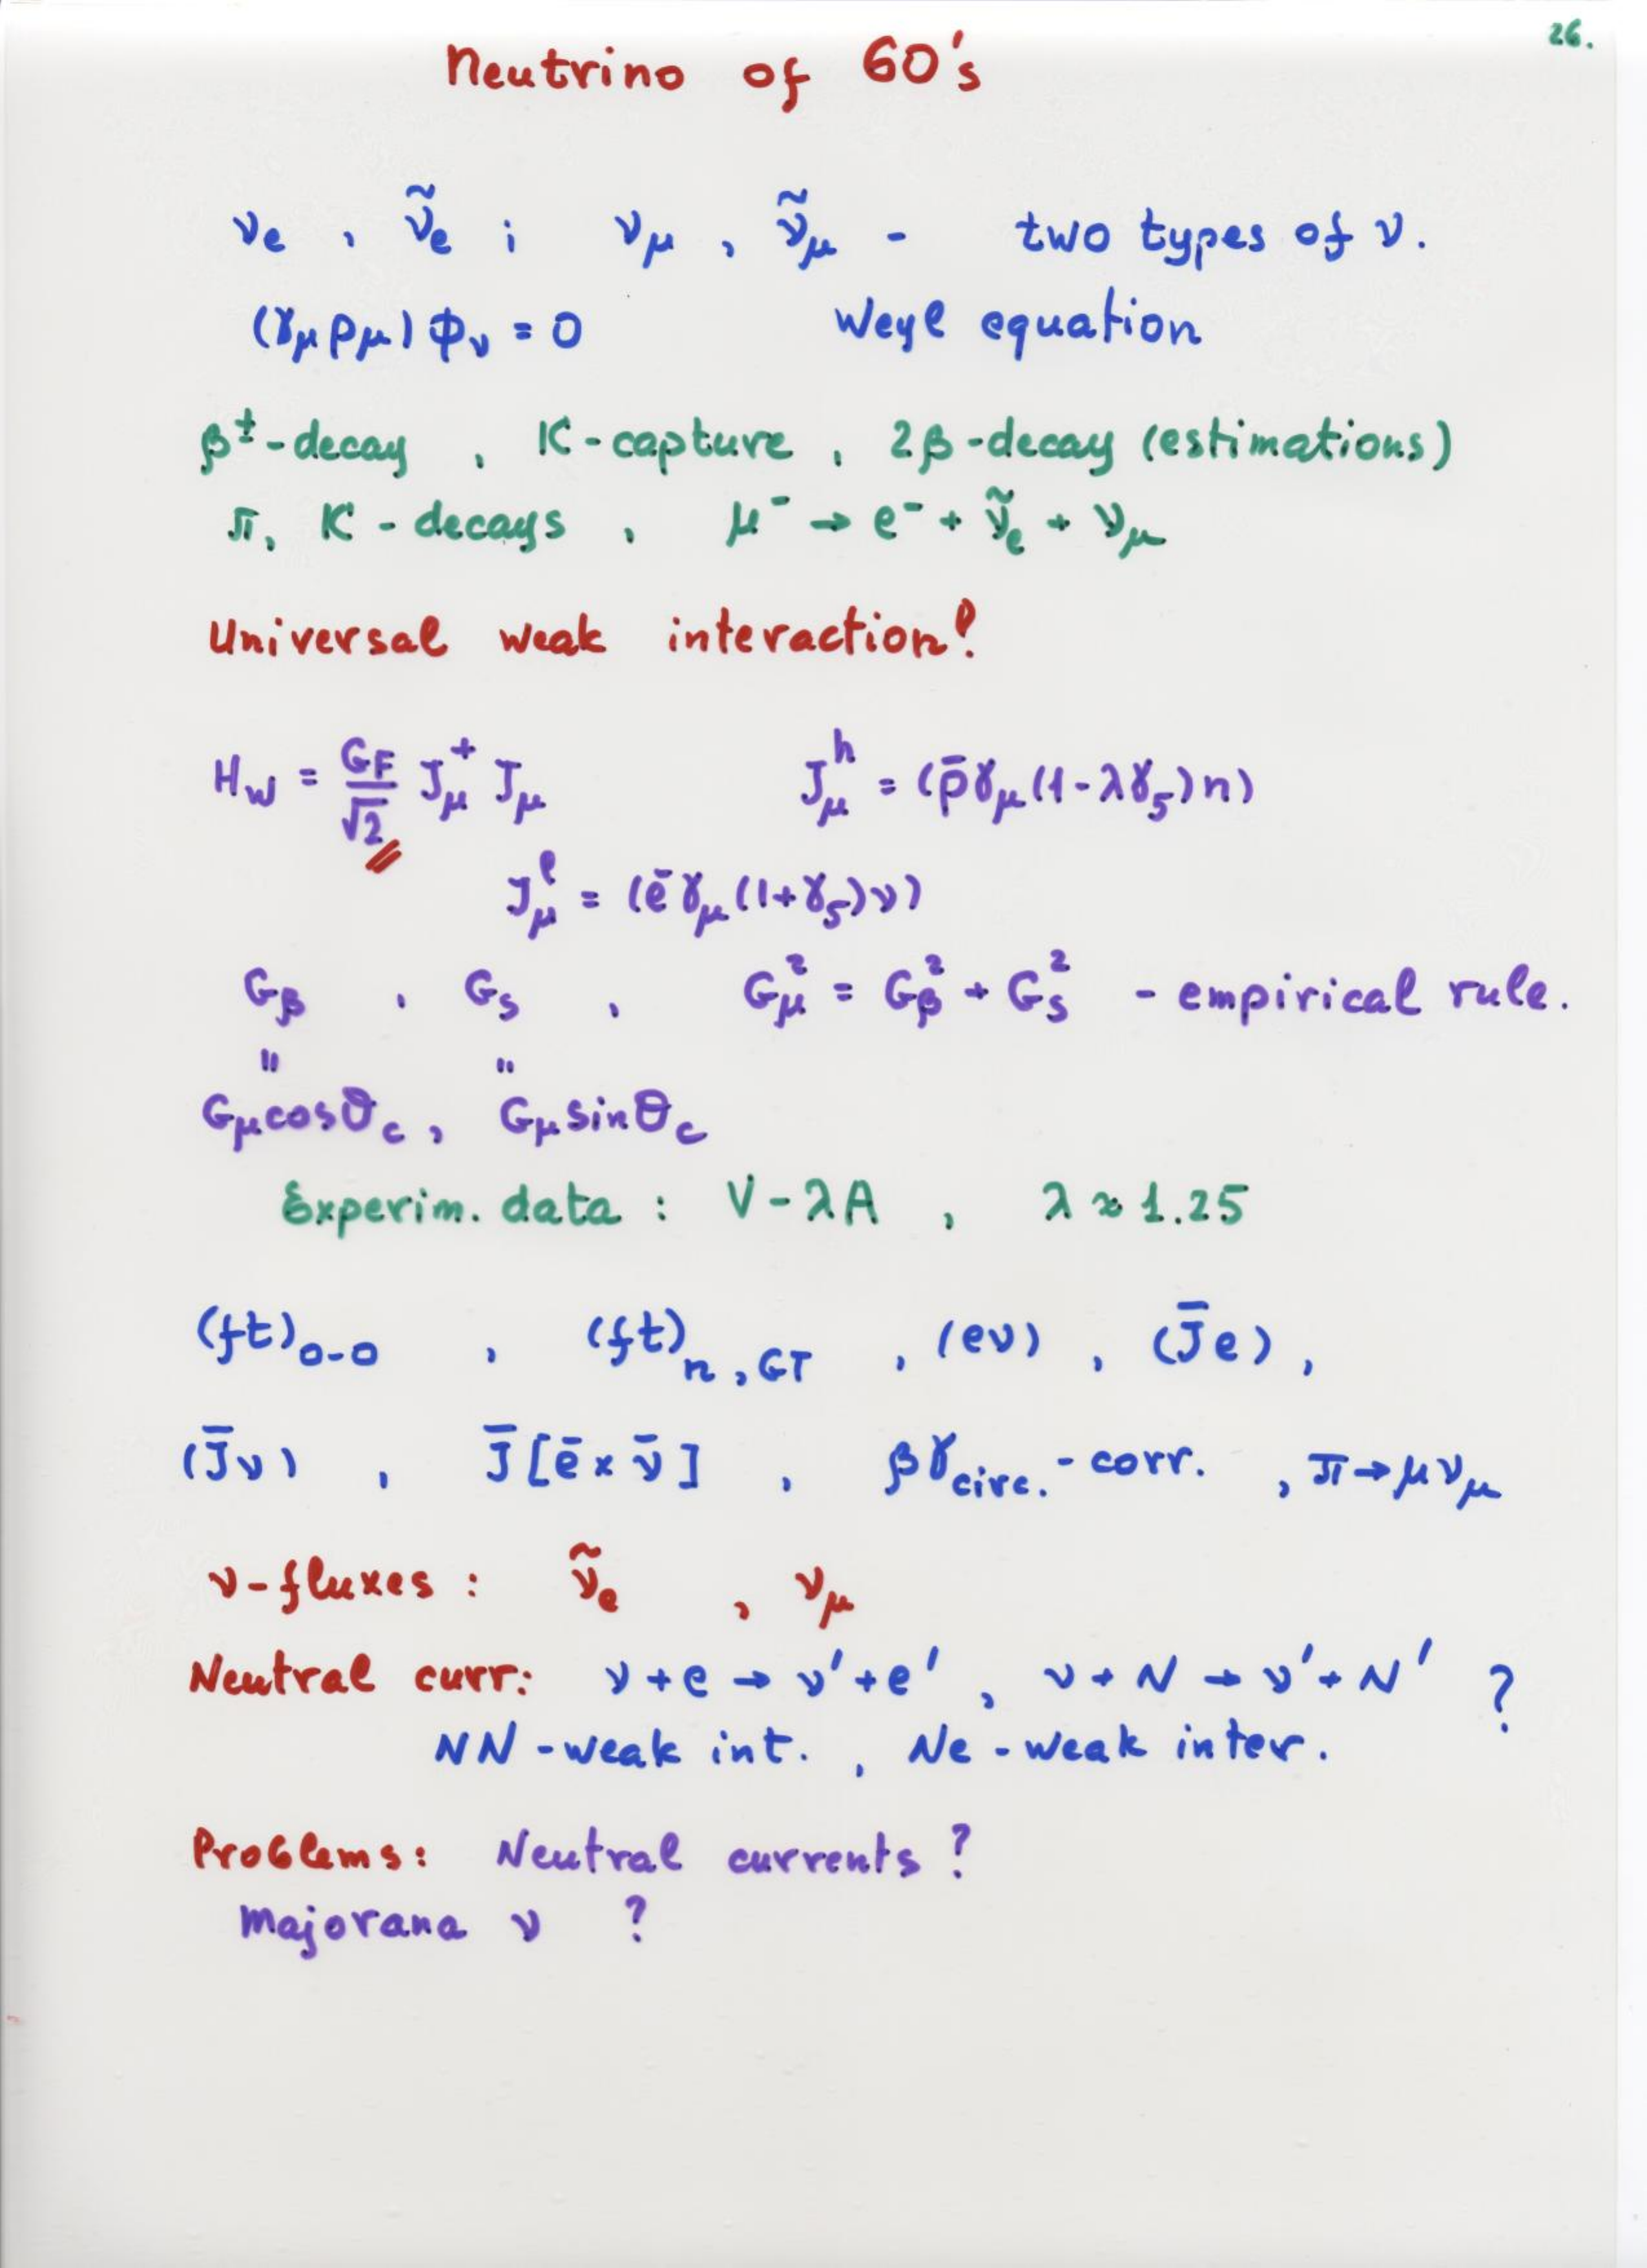 26.
Neutrino of 60's
νe , ν̃e ; νμ , ν̃μ - two types of ν.
(γμ pμ) φν = 0 Weyl equation
β±-decay , K-capture , 2β-decay (estimations)
π, K - decays , μ⁻ → e⁻ + ν̃e + νμ
Universal weak interaction!
Hw = GF/√2 Jμ⁺ Jμ Jμʰ = (p̄γμ(1-λγ5)n)
Jμˡ = (ēγμ(1+γ5)ν)
Gβ , Gs , Gμ² = Gβ² + Gs² - empirical rule.
" "
Gμcosθc , Gμsinθc
Experim. data : V-λA , λ ≈ 1.25
(ft)0-0 , (ft)n,GT , (eν) , (J̄e) ,
(J̄ν) , J̄[ē × ν̄] , βγcirc.-corr. , π→μνμ
ν-fluxes : ν̃e , νμ
Neutral curr: ν + e → ν' + e' , ν + N → ν' + N' ?
NN-weak int. , Ne-weak inter.
Problems: Neutral currents ?
Majorana ν ?